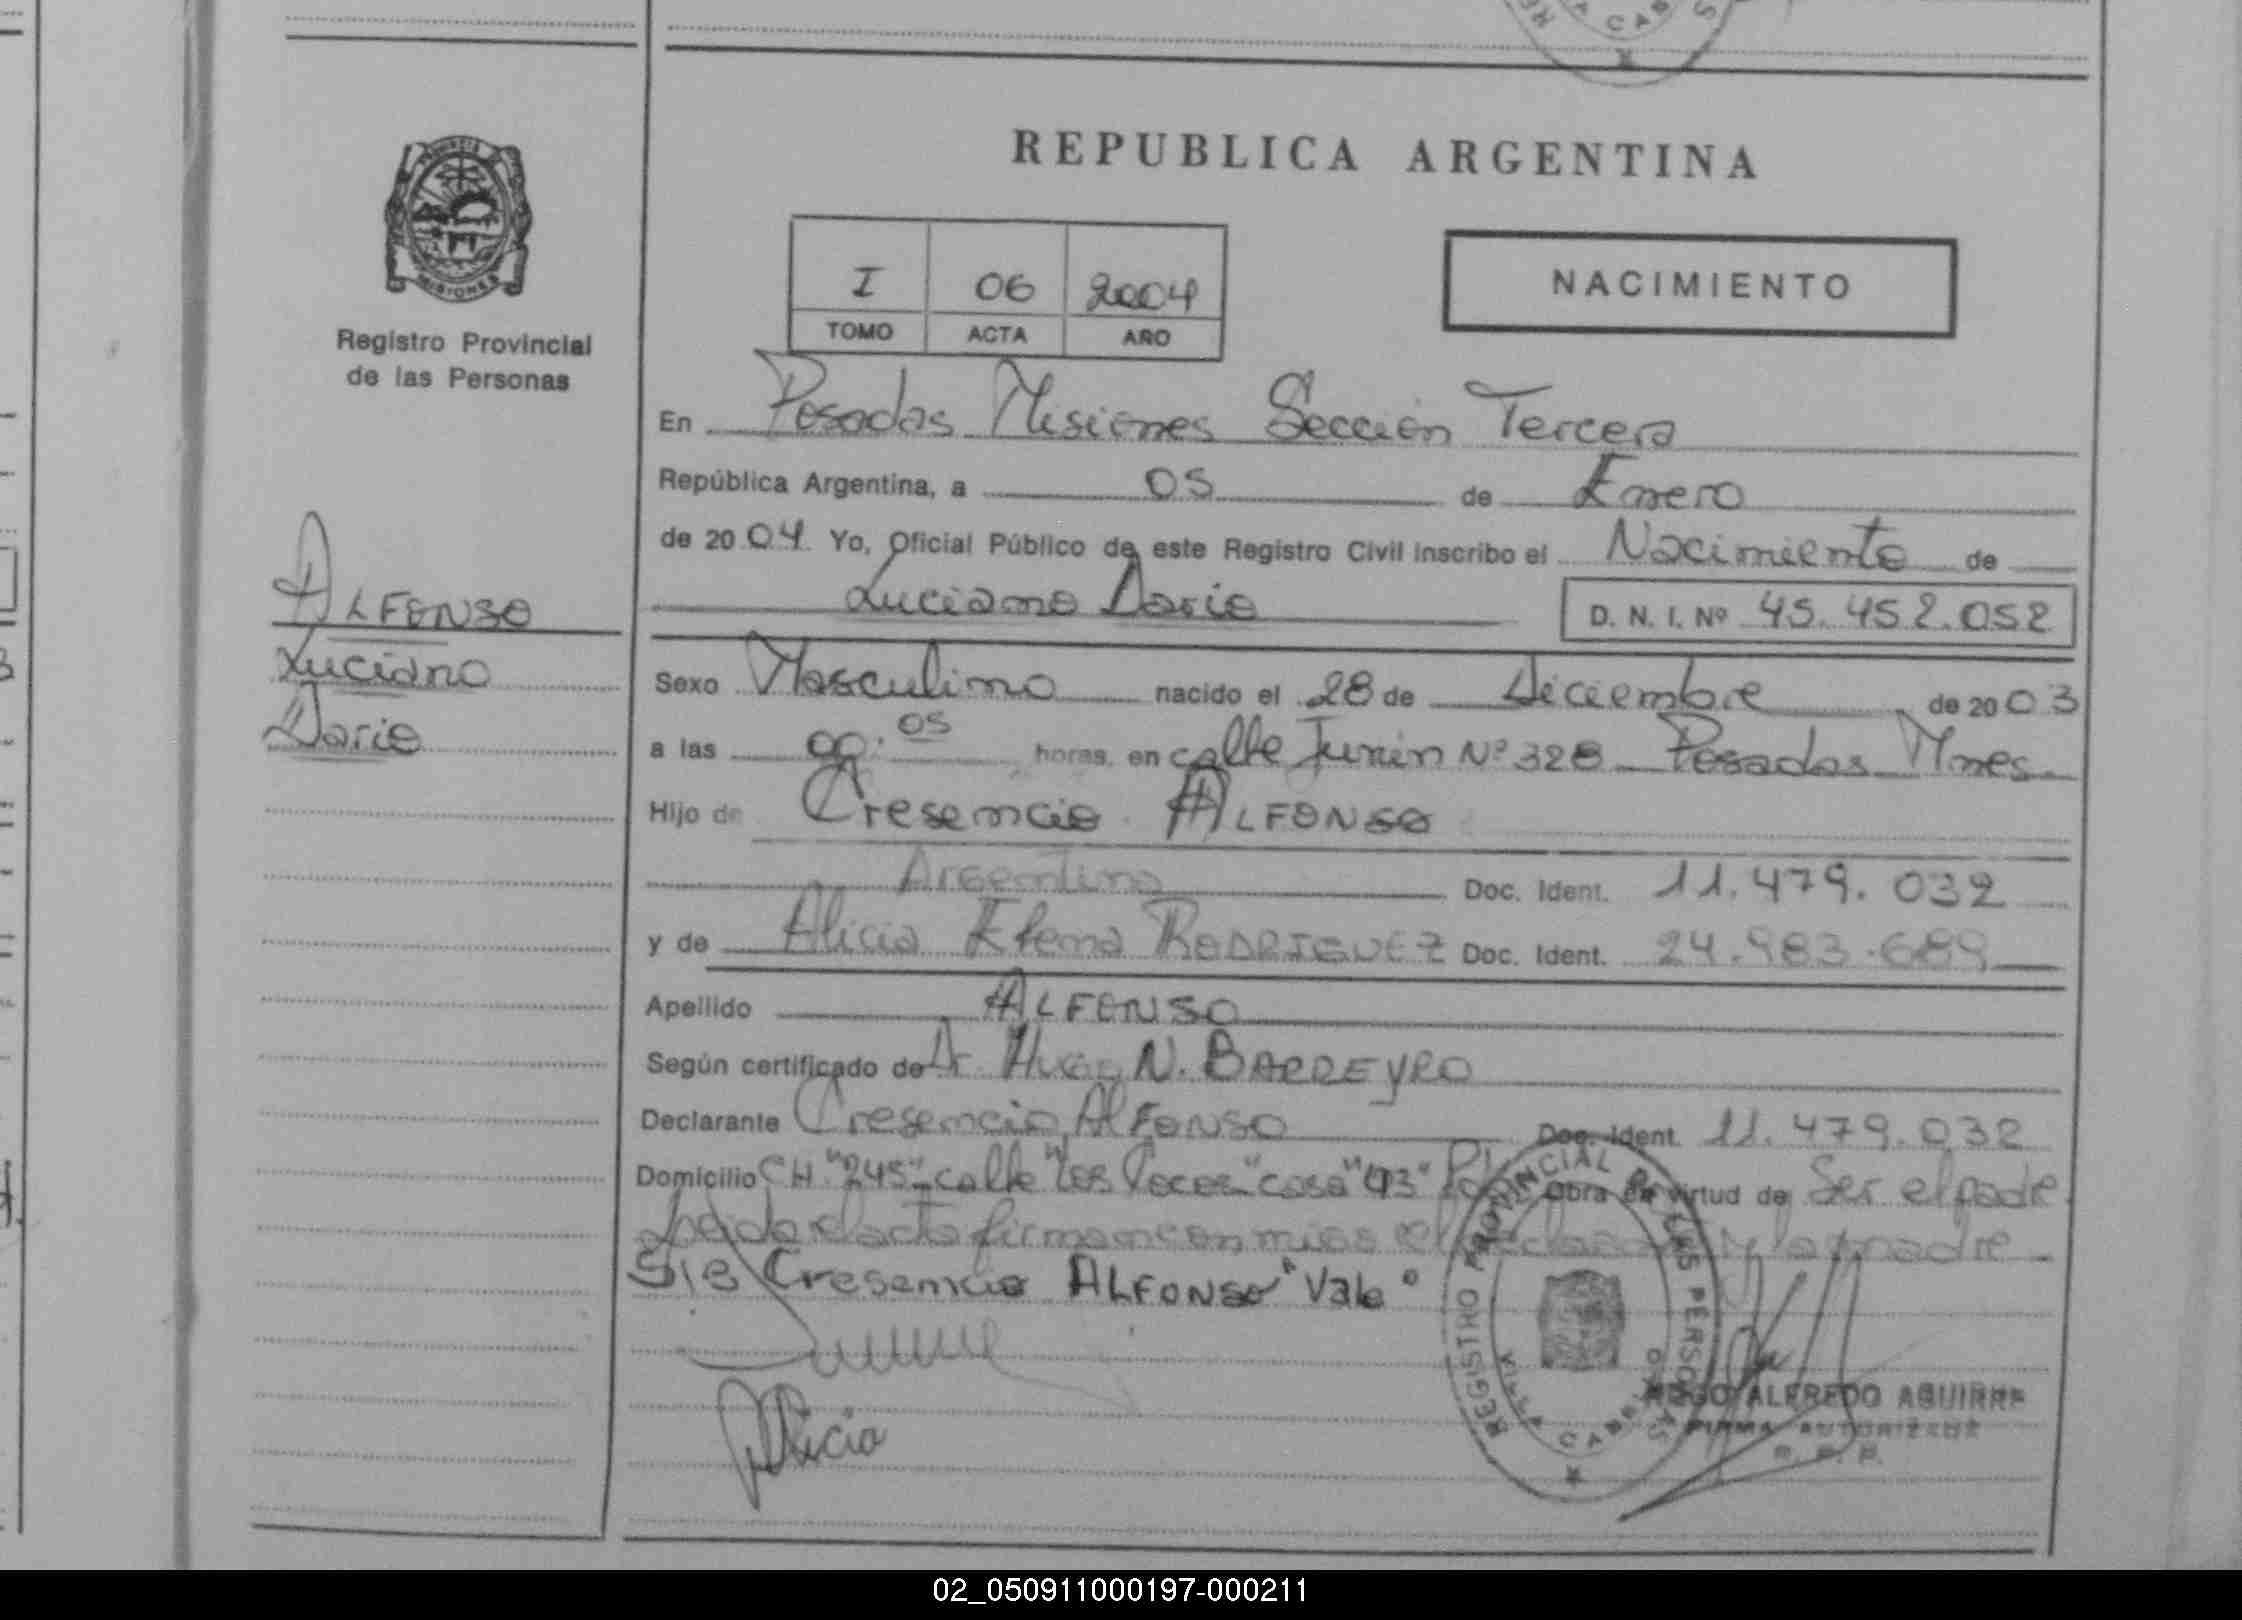 REPUBLICA ARGENTINA
I 06 2004
TOMO ACTA AÑO
NACIMIENTO
PROVINCIA
MISIONES
Registro Provincial
de las Personas
ALFONSO
Luciano
Dario
En Posadas Misiones Sección Tercera
República Argentina, a 05 de Enero
de 2004 Yo, Oficial Público de este Registro Civil inscribo el Nacimiento de
Luciano Dario D. N. I. Nº 45.452.052
Sexo Masculino nacido el 28 de Diciembre de 2003
a las 00:05 horas, en calle Junín Nº 328 Posadas Mnes
Hijo de Cresencio ALFONSO
Argentina Doc. Ident. 11.479.032
y de Alicia Elena RODRIGUEZ Doc. Ident. 24.983.689
Apellido ALFONSO
Según certificado de Dr. Hugo N. BARREYRO
Declarante Cresencio ALFONSO Doc. Ident. 11.479.032
Domicilio CH. "245" calle "Los casa "93" Obra en virtud de Ser el padre
Leída el acta firman conmigo el declarante y la madre
S/B Cresencio ALFONSO "Vale"
Alicia
REGISTRO PROVINCIAL DE LAS PERSONAS
VILLA CABELLO
ALFREDO AGUIRRE
FIRMA AUTORIZADA
R. P. P.
02_050911000197-000211